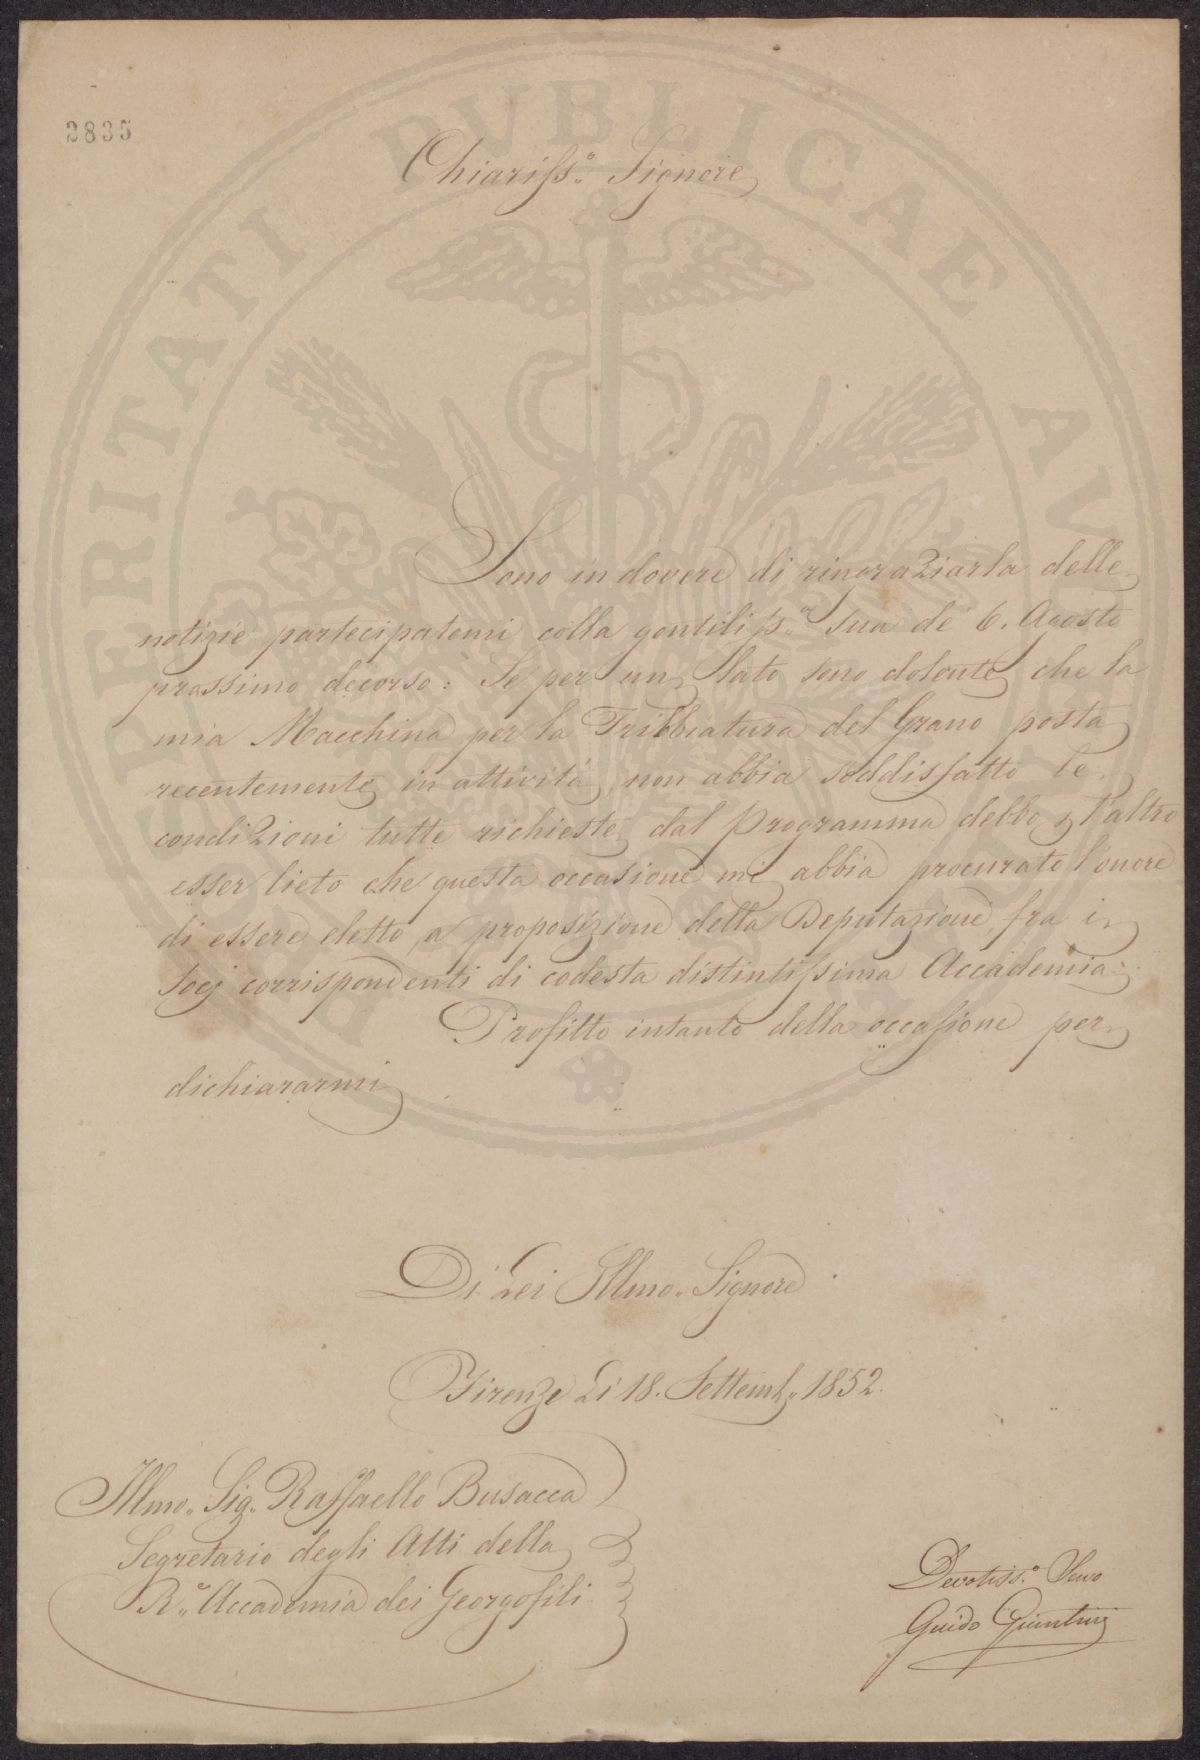 2835
Chiariss.o Signore
Sono in dovere di ringraziarla delle
notizie partecipatemi colla gentiliss.a sua de 6. Agosto
prossimo decorso: Se per un lato sono dolente che la
mia Macchina per la Tribbiatura del Grano posta
recentemente in attività, non abbia soddisfatto le
condizioni tutte richieste dal Programma debbo p l'altro
esser lieto che questa occasione mi abbia procurato l'onore
di essere eletto, a proposizione della Deputazione, fra i
socj corrispondenti di codesta distintissima Accademia:
Profitto intanto della occasione per
dichiararmi
Di Lei Illmo. Signore
Firenze Li 18. Settemb. 1852.
Illmo. Sig. Raffaello Busacca
Segretario degli Atti della
R.e Accademia dei Georgofili
Devotiss.o Servo
Guido Giuntini
PROSPERITATI PUBLICAE AUGENDAE